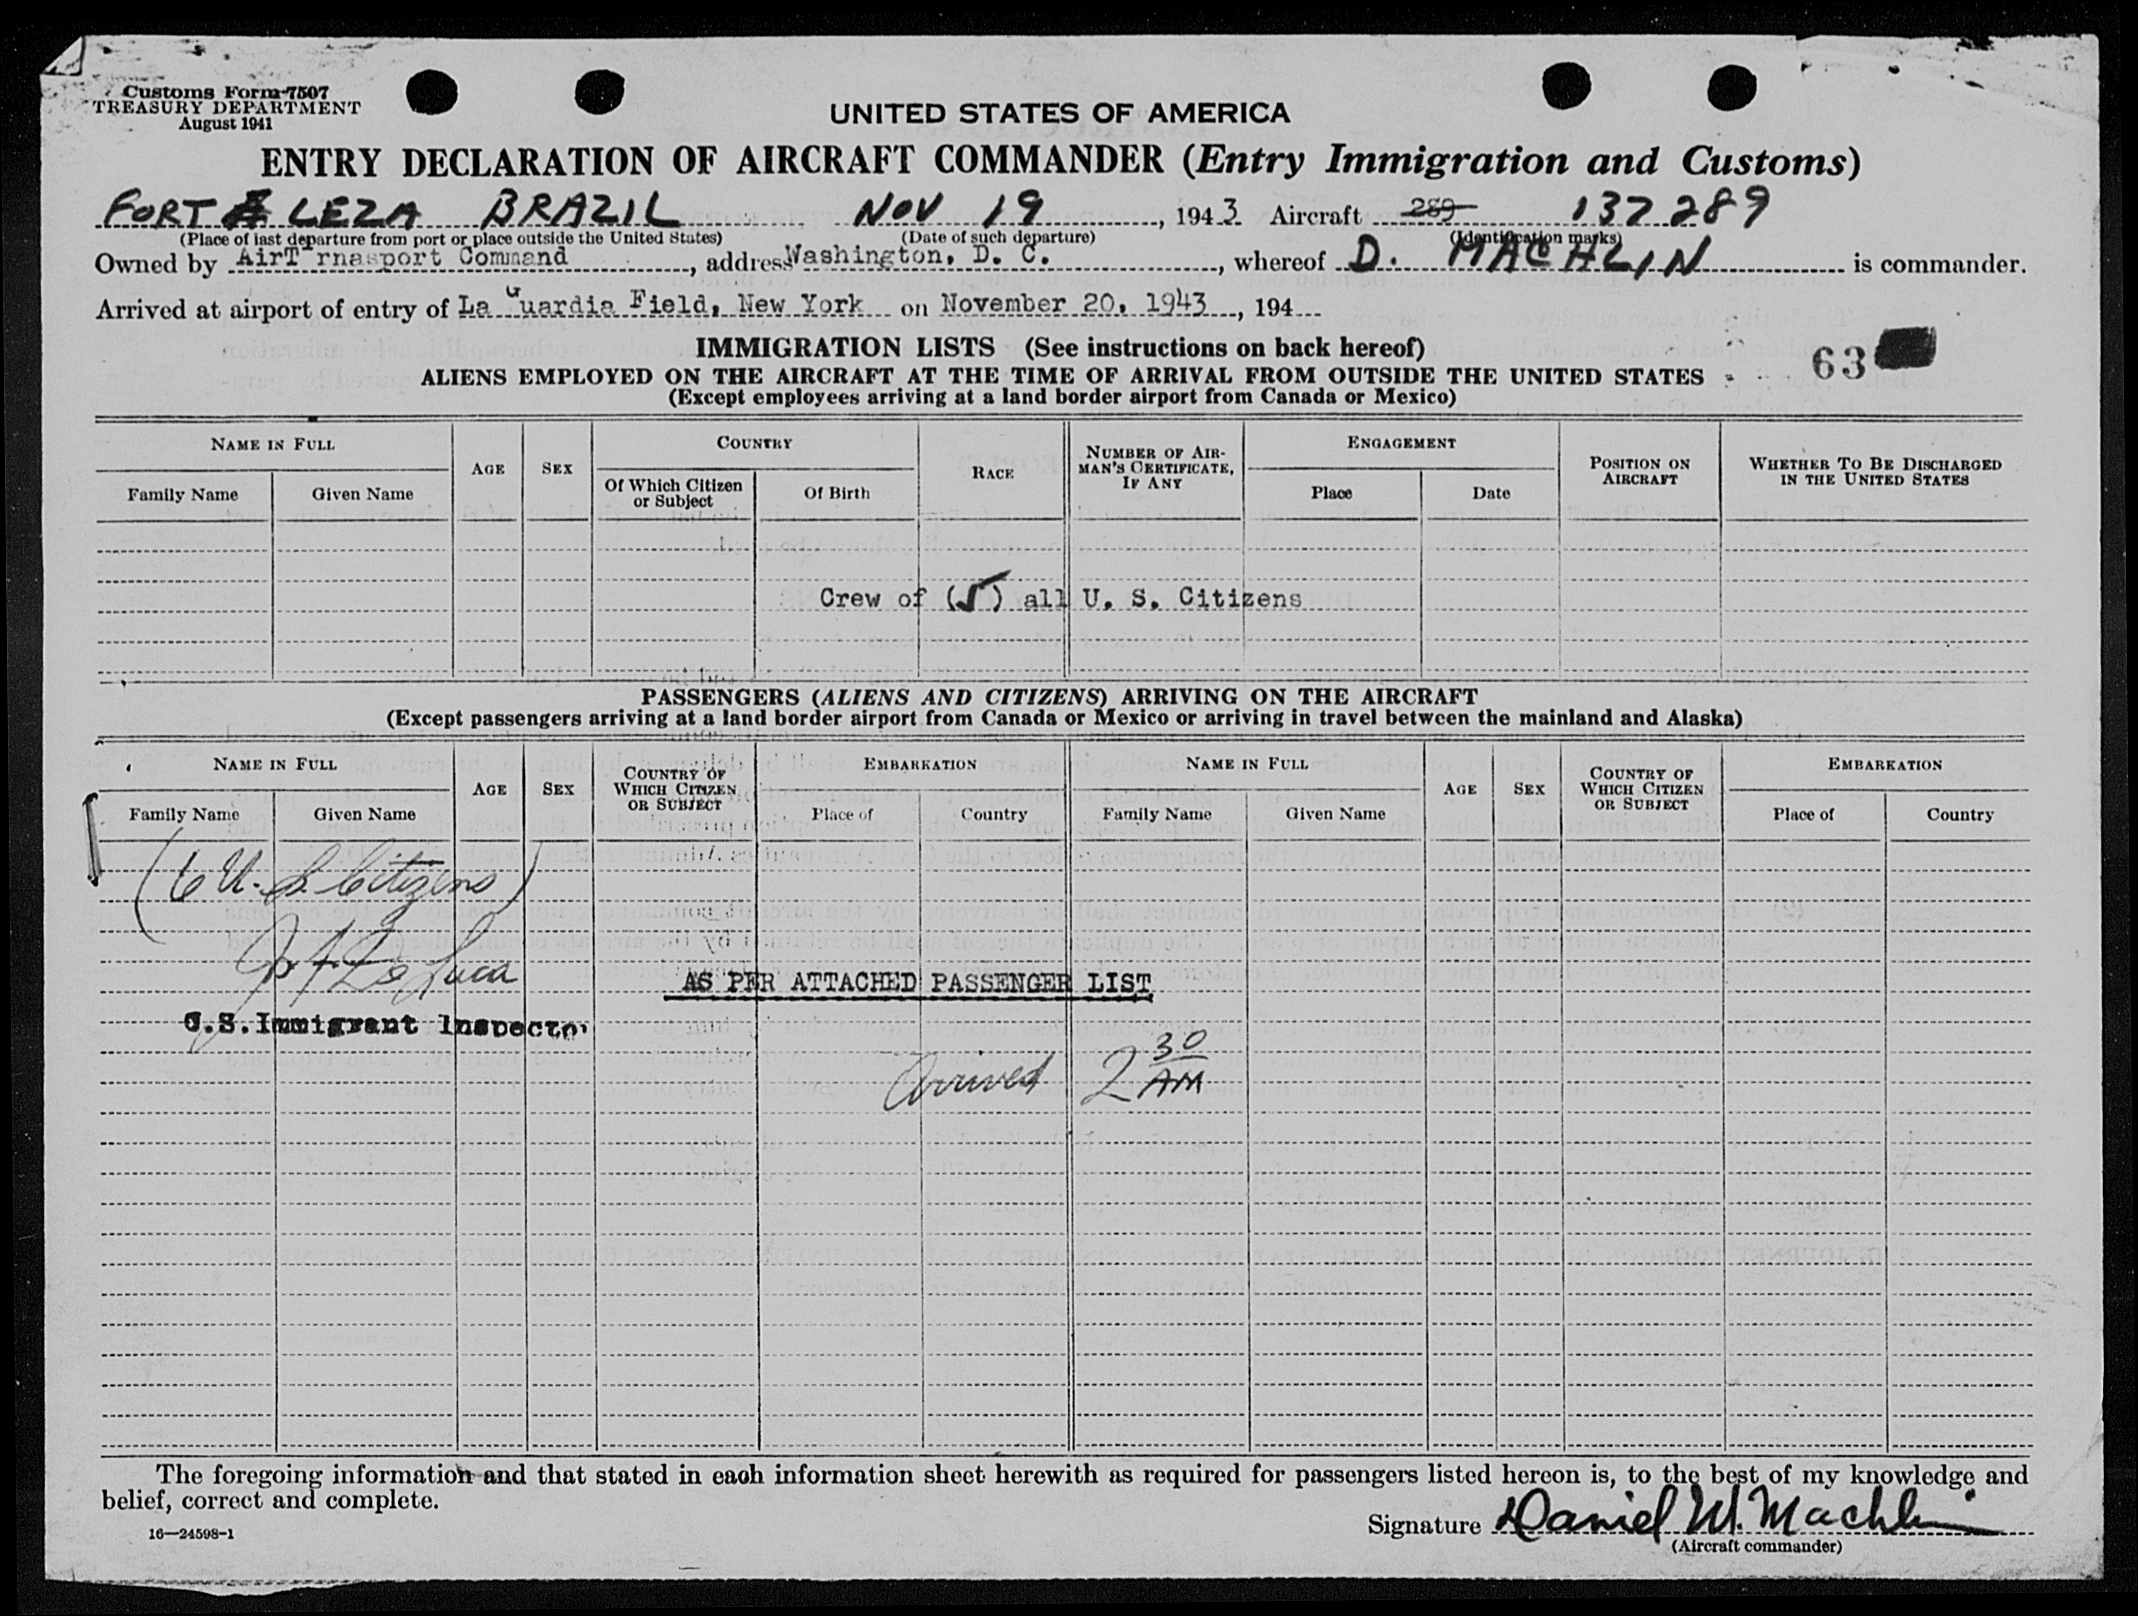 Customs Form 7507
TREASURY DEPARTMENT
August 1941
UNITED STATES OF AMERICA
ENTRY DECLARATION OF AIRCRAFT COMMANDER (Entry Immigration and Customs)
FORT LEZA BRAZIL NOV 19, 1943 Aircraft 289 137289
(Place of last departure from port or place outside the United States) (Date of such departure) (Identification marks)
Owned by AirT rnasport Command, address Washington, D. C., whereof D. MACHLIN is commander.
Arrived at airport of entry of La Guardia Field, New York on November 20, 1943, 194
IMMIGRATION LISTS (See instructions on back hereof)
63
ALIENS EMPLOYED ON THE AIRCRAFT AT THE TIME OF ARRIVAL FROM OUTSIDE THE UNITED STATES
(Except employees arriving at a land border airport from Canada or Mexico)
NAME IN FULL AGE SEX COUNTRY RACE NUMBER OF AIRMAN'S CERTIFICATE, IF ANY ENGAGEMENT POSITION ON AIRCRAFT WHETHER TO BE DISCHARGED IN THE UNITED STATES
Family Name Given Name Of Which Citizen or Subject Of Birth Place Date
Crew of (5) all U. S. Citizens
PASSENGERS (ALIENS AND CITIZENS) ARRIVING ON THE AIRCRAFT
(Except passengers arriving at a land border airport from Canada or Mexico or arriving in travel between the mainland and Alaska)
NAME IN FULL AGE SEX COUNTRY OF WHICH CITIZEN OR SUBJECT EMBARKATION NAME IN FULL AGE SEX COUNTRY OF WHICH CITIZEN OR SUBJECT EMBARKATION
Family Name Given Name Place of Country Family Name Given Name Place of Country
(6 U. S. Citizens)
De Luca
AS PER ATTACHED PASSENGER LIST
U.S. Immigrant Inspector
Arrived 2 30 AM
The foregoing information and that stated in each information sheet herewith as required for passengers listed hereon is, to the best of my knowledge and
belief, correct and complete.
Signature Daniel W. Machlin
(Aircraft commander)
16—24598-1